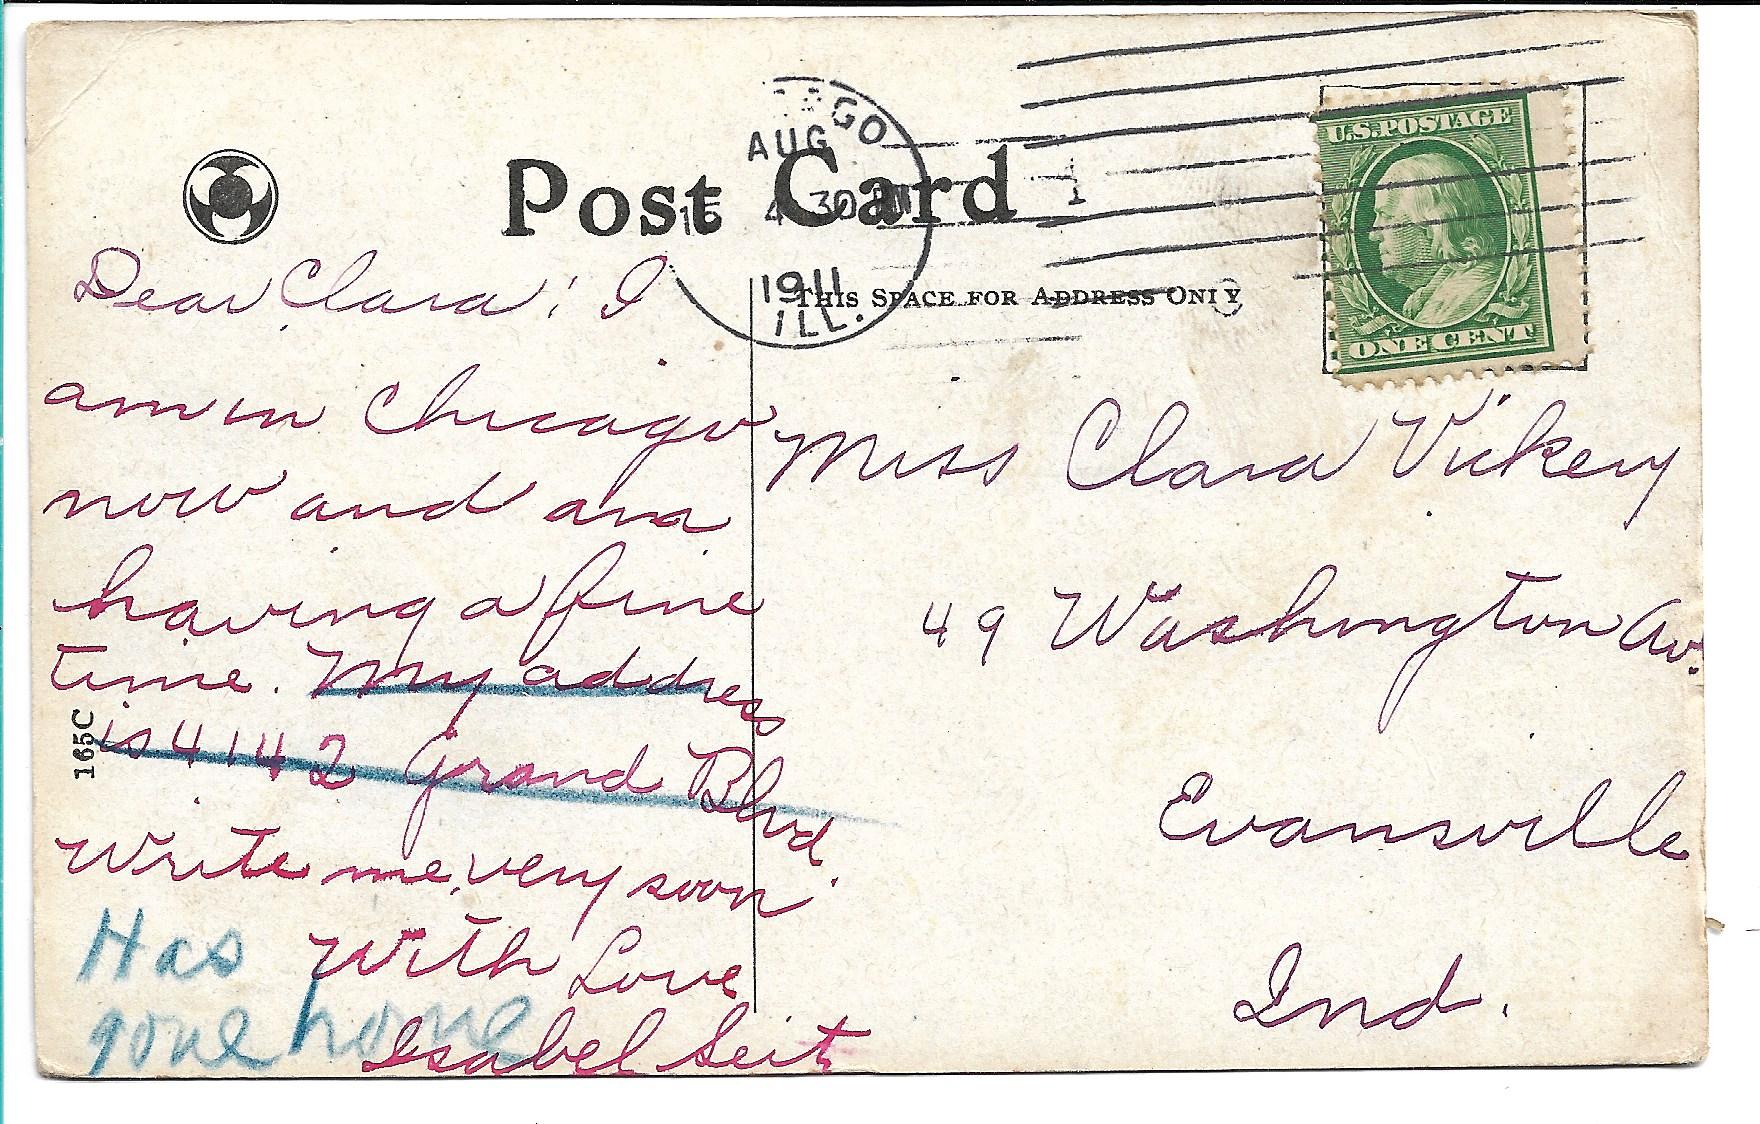 Post Card
AUG
15 4 30 PM
1911
ILL.
1
THIS SPACE FOR ADDRESS ONLY
U.S. POSTAGE
ONE CENT
Dear Clara: I
am in Chicago
now and am
having a fine
time. My address
is 4142 Grand Blvd.
Write me very soon
With Love
Isabel Seit
Has
gone home
165C
Miss Clara Vickery
49 Washington Av.
Evansville
Ind.